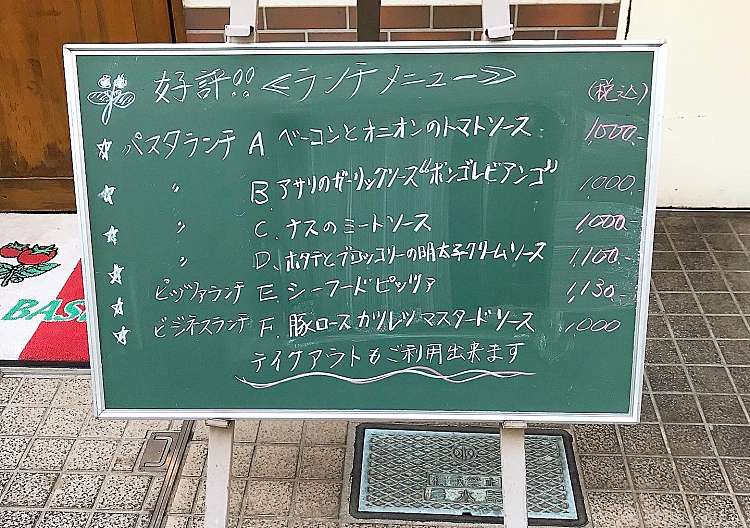 好評!! ≪ランチメニュー≫ (税込)
☆ パスタランチ A ベーコンとオニオンのトマトソース 1,000-
☆ 〃 B アサリのガーリックソース"ボンゴレビアンコ" 1,000-
☆ 〃 C. ナスのミートソース 1,000-
☆ 〃 D. ホタテとブロッコリーの明太子クリームソース 1,100-
☆ ピッツァランチ E. シーフードピッツァ 1,130-
☆ ビジネスランチ F. 豚ロースカツレツマスタードソース 1,000
テイクアウトもご利用出来ます
BAS